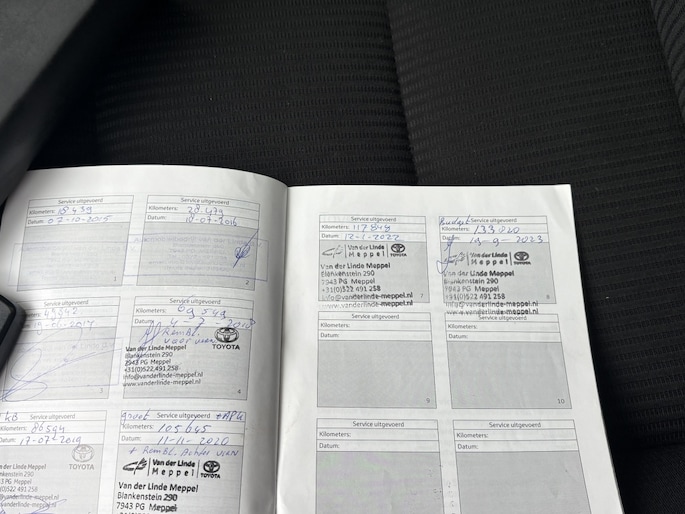 Service uitgevoerd
Kilometers: 18439
Datum: 07-10-2015
1
Service uitgevoerd
Kilometers: 28479
Datum: 18-07-2016
2
3
Service uitgevoerd
Kilometers: 69549
Datum: 4-7-2018
Rembl.
voor vern
TOYOTA
Van der Linde Meppel
Blankenstein 290
7943 PG Meppel
+31(0)522 491 258
info@vanderlinde-meppel.nl
www.vanderlinde-meppel.nl
4
Service uitgevoerd
Kilometers: 86594
Datum: 17-07-2019
TOYOTA
Van der Linde Meppel
Blankenstein 290
Meppel
groot Service uitgevoerd + APK
Kilometers: 105645
Datum: 11-11-2020
+ Rembl. Achter vern
Van der Linde
Meppel
TOYOTA
Van der Linde Meppel
Blankenstein 290
7943 PG Meppel
Service uitgevoerd
Kilometers: 117848
Datum: 12-1-2022
Van der Linde
Meppel
TOYOTA
Van der Linde Meppel
Blankenstein 290
7943 PG Meppel
+31(0)522 491 258
info@vanderlinde-meppel.nl
www.vanderlinde-meppel.nl
7
Budget Service uitgevoerd
Kilometers: 133020
Datum: 19-9-2023
Van der Linde
Meppel
TOYOTA
Van der Linde Meppel
Blankenstein 290
7943 PG Meppel
+31(0)522 491 258
info@vanderlinde-meppel.nl
www.vanderlinde-meppel.nl
8
Service uitgevoerd
Kilometers:
Datum:
9
Service uitgevoerd
Kilometers:
Datum:
10
Service uitgevoerd
Kilometers:
Datum:
Service uitgevoerd
Kilometers:
Datum: